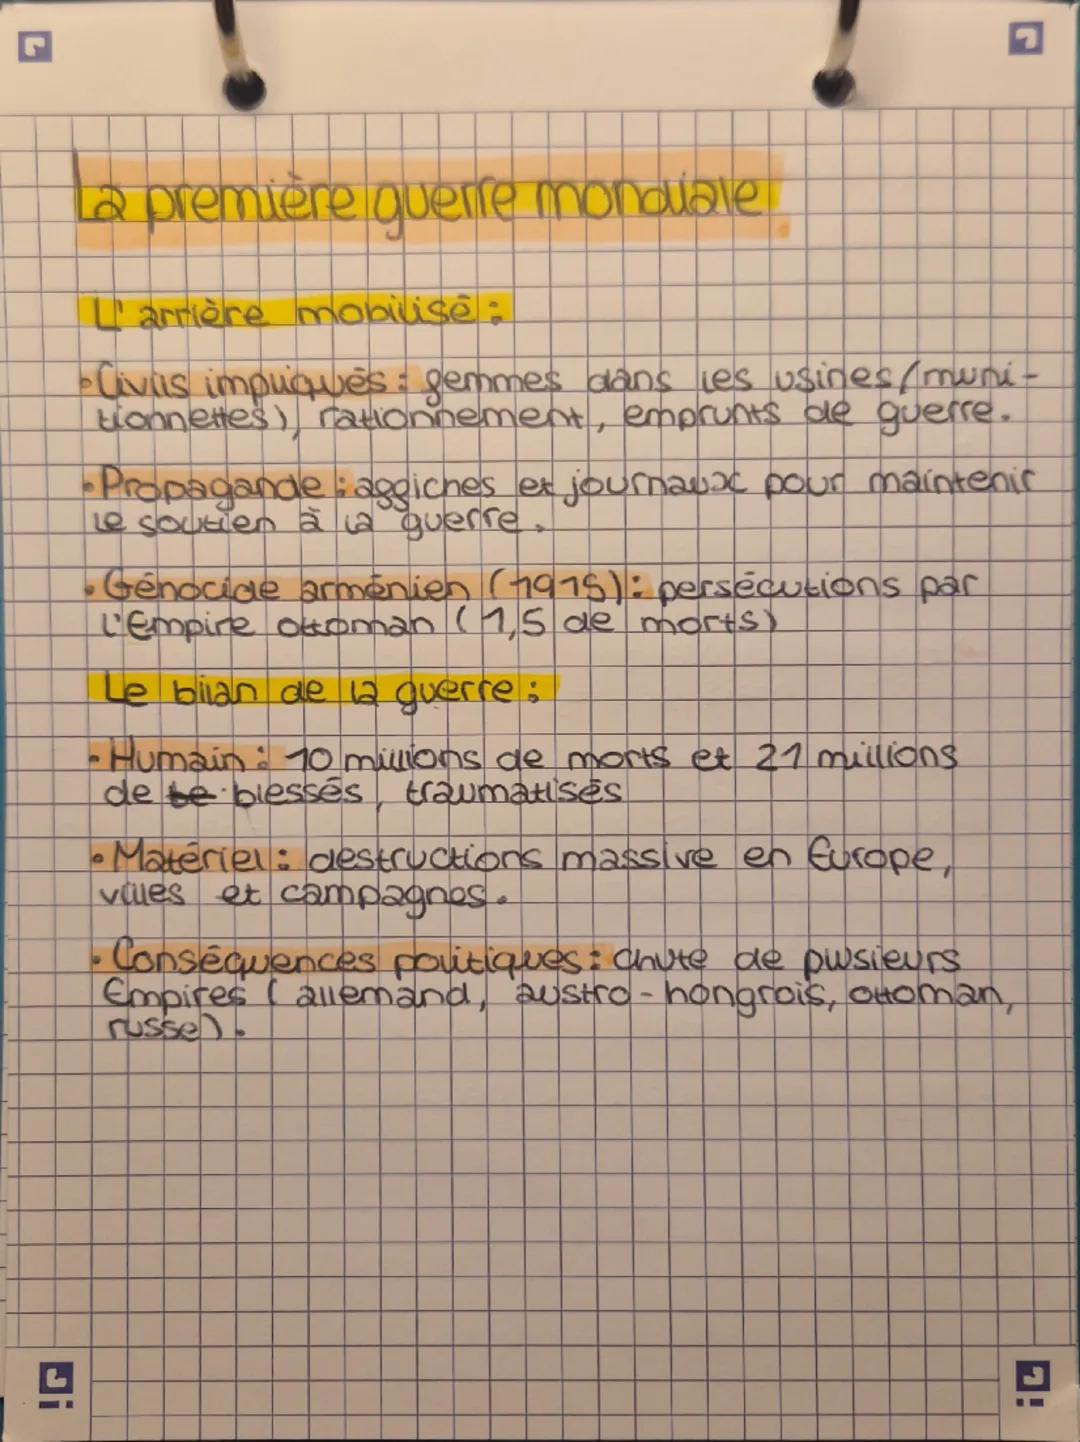 La première guerre mondiale
L'arrière mobilisé :
• Civils impliqués : femmes dans les usines (muni-
tionnettes), rationnement, emprunts de guerre.
• Propagande : affiches et journaux pour maintenir
le soutien à la guerre.
• Génocide arménien (1915) : persécutions par
l'Empire ottoman (1,5 de morts)
Le bilan de la guerre :
• Humain : 10 millions de morts et 21 millions
de be blessés, traumatisés
• Matériel : destructions massive en Europe,
villes et campagnes.
• Conséquences politiques : chute de plusieurs
Empires (allemand, austro-hongrois, ottoman,
russe).